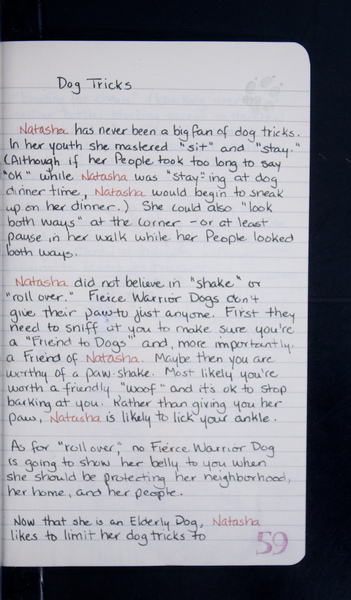 Dog Tricks
Natasha has never been a big fan of dog tricks.
In her youth she mastered "sit" and "stay."
(Although if her People took too long to say
"OK" while Natasha was "stay"ing at dog
dinner time, Natasha would begin to sneak
up on her dinner.) She could also "look
both ways" at the corner - or at least
pause in her walk while her People looked
both ways.
Natasha did not believe in "shake" or
"roll over." Fierce Warrior Dogs don't
give their paw to just anyone. First they
need to sniff at you to make sure you're
a "Friend to Dogs" and, more importantly,
a Friend of Natasha. Maybe then you are
worthy of a paw-shake. Most likely you're
worth a friendly "woof" and it's ok to stop
barking at you. Rather than giving you her
paw, Natasha is likely to lick your ankle.
As for "roll over," no Fierce Warrior Dog
is going to show her belly to you when
she should be protecting her neighborhood,
her home, and her people.
Now that she is an Elderly Dog, Natasha
likes to limit her dog tricks to
59